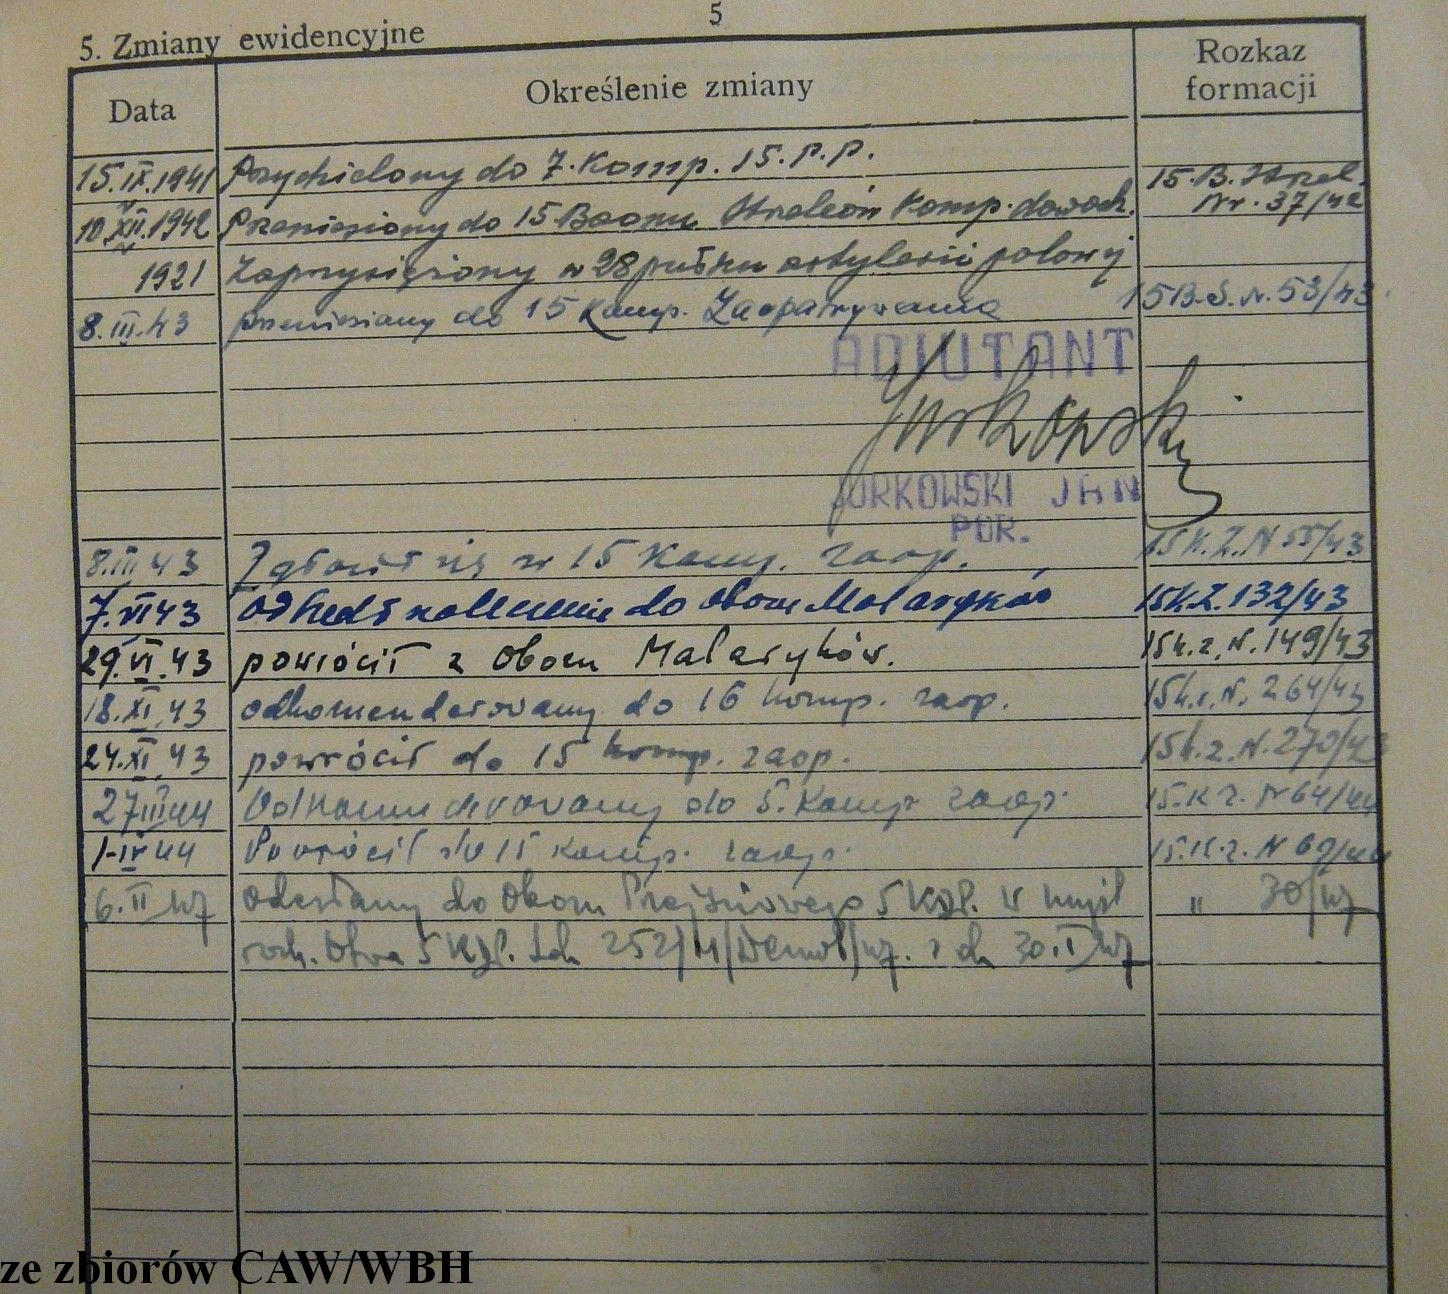 5
5. Zmiany ewidencyjne
Data Określenie zmiany Rozkaz formacji
15.IX.1941 Przydzielony do 7. Komp. 15. p.p.
10.XII.1942 Przeniesiony do 15 Baonu Strzelców Komp. dowodz. 15.B.Strzel. Nr. 37/42
1921 Zaprzysiężony w 28 pułku artylerii polowej
8.III.43 przeniesiony do 15 Komp. Zaopatrywania 15 B.S. N. 53/43
ADIUTANT
Jurkowski
JURKOWSKI JAN
POR.
8.III 43 Zgłosił się w 15 Komp. zaop. 15 K.Z. N 55/43
7.VI 43 do obozu Malaryków 15k.Z. 132/43
29.VI.43 powrócił z obozu Malaryków. 15k.z. N. 149/43
18.XI.43 odkomenderowany do 16 komp. zaop. 15k.z. N. 264/43
24.XI.43 powrócił do 15 komp. zaop. 15k.z. N. 270/43
27III44 Odkomenderowany do 5. Komp. zaop. 15.K.z. N 64/44
1-IV 44 Powrócił do 15 komp. zaop. 15.K.z. N 69/44
6.II 47 odesłany do Obozu Przejściowego 5 KDP. w myśl " 30/47
rozk. 5 KDP. Ldz 252/M/Demob/47. z dn 30.I 47
ze zbiorów CAW/WBH